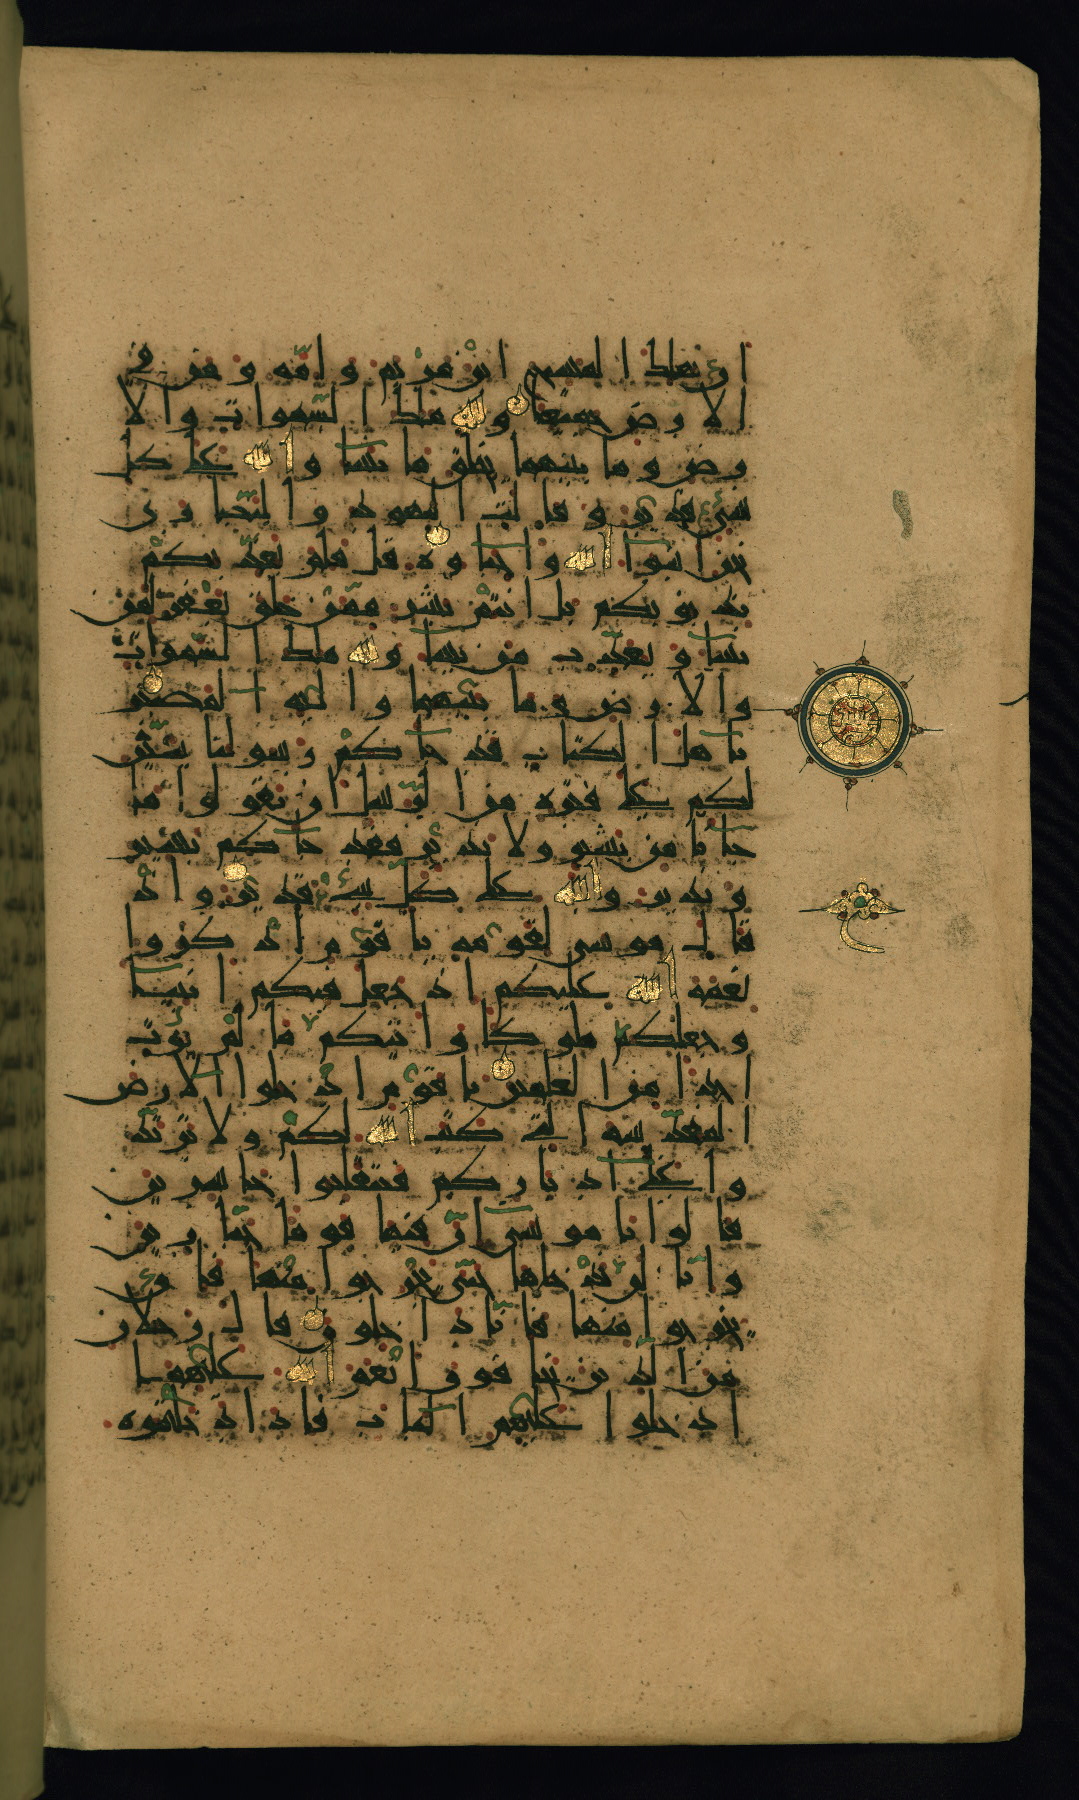 ان يهلك المسيح ابن مريم وامه ومن في
الارض جميعا ولله ملك السموات والا
رض وما بينهما يخلق ما يشا والله على كل
شيء قدير وقالت اليهود والنصارى
نحن ابنوا الله واحباوه قل فلم يعذبكم
بذنوبكم بل انتم بشر ممن خلق يغفر لمن
يشا ويعذب من يشا ولله ملك السموات
والارض وما بينهما واليه المصير
ياهل الكتاب قد جاكم رسولنا يبين
لكم على فترة من الرسل ان تقولوا ما
جانا من بشير ولا نذير فقد جاكم بشير
ونذير والله على كل شيء قدير واذ
قال موسى لقومه يا قوم اذكروا
نعمة الله عليكم اذ جعل فيكم انبيا
وجعلكم ملوكا واتيكم ما لم يوت
احدا من العلمين يا قوم ادخلوا الارض
المقدسة التي كتب الله لكم ولا ترتد
وا على ادباركم فتنقلبوا خاسرين
قالوا يا موسى ان فيها قوما جبارين
وانا لن ندخلها حتى يخرجوا منها فان
يخرجوا منها فانا داخلون قال رجلان
من الذين يخافون انعم الله عليهما
ادخلوا عليهم الباب فاذا دخلتموه